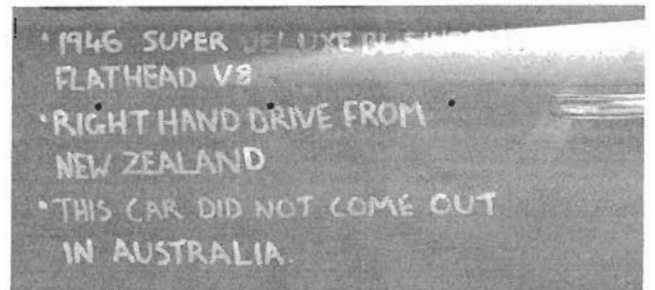 • 1946 SUPER DELUXE
FLATHEAD V8
• RIGHT HAND DRIVE FROM
NEW ZEALAND
• THIS CAR DID NOT COME OUT
IN AUSTRALIA.